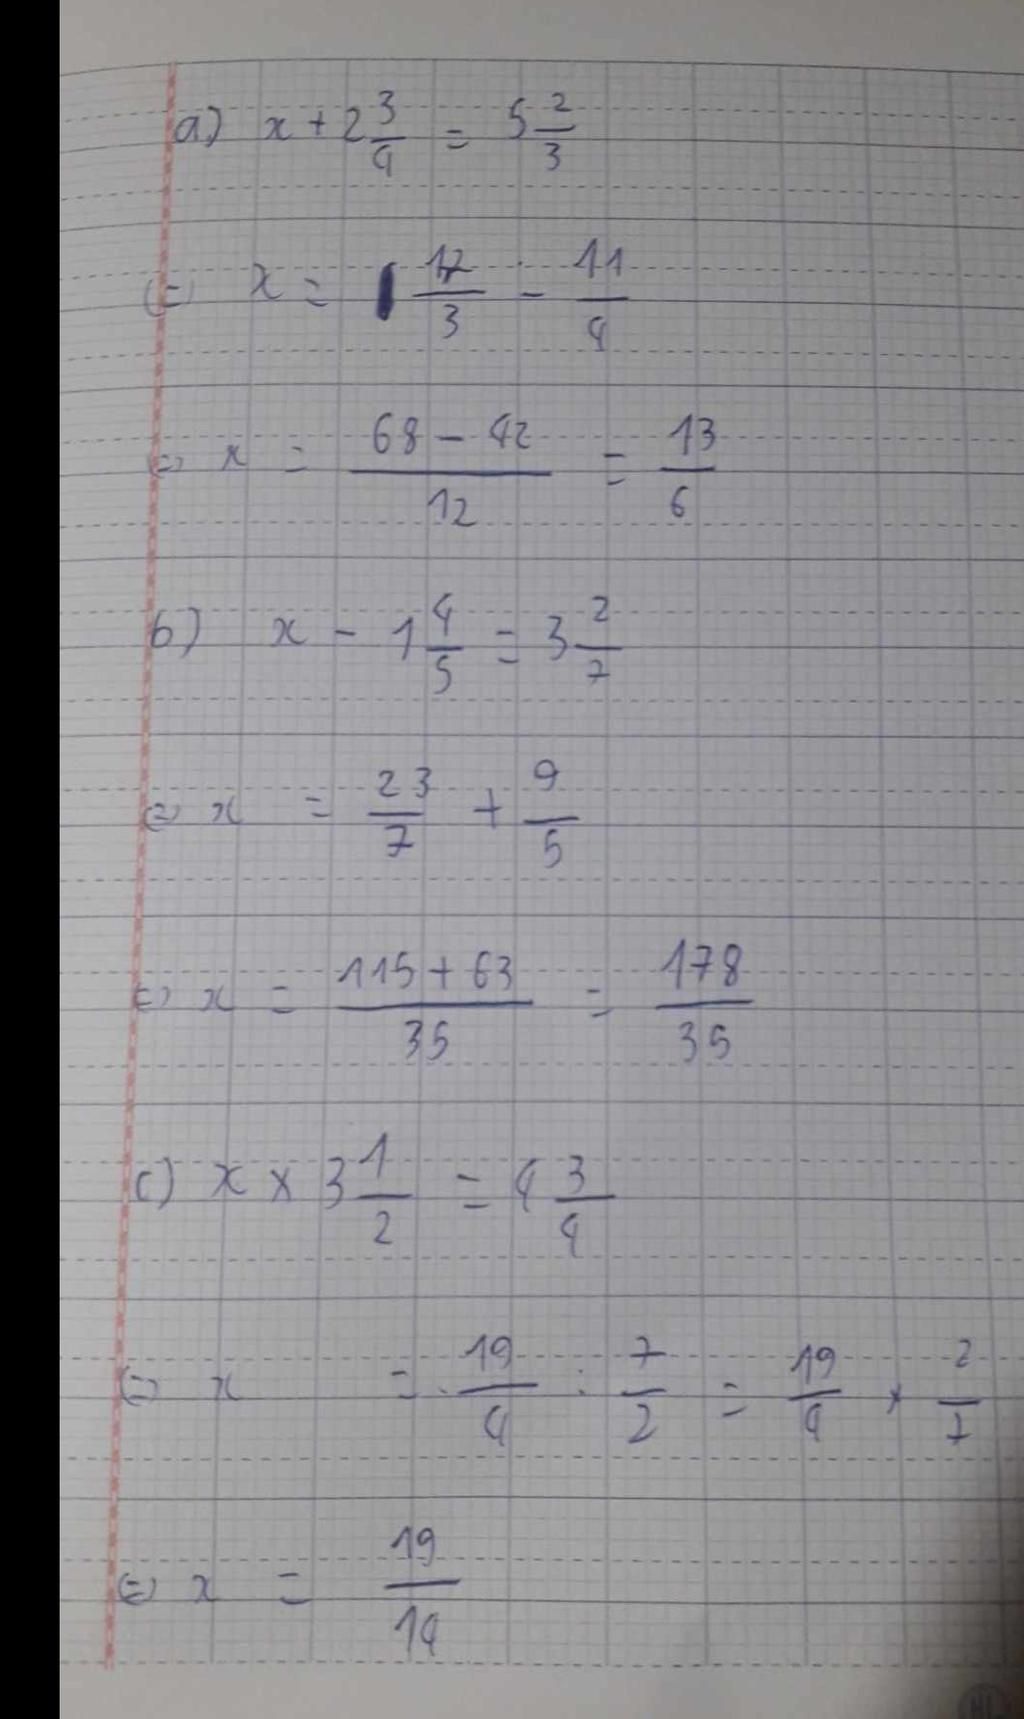 a) x + 2 3/4 = 5 2/3
⇔ x = 17/3 - 11/4
⇔ x = (68 - 42)/12 = 13/6
b) x - 1 4/5 = 3 2/7
⇔ x = 23/7 + 9/5
⇔ x = (115 + 63)/35 = 178/35
c) x × 3 1/2 = 4 3/4
⇔ x = 19/4 : 7/2 = 19/4 × 2/7
⇔ x = 19/14